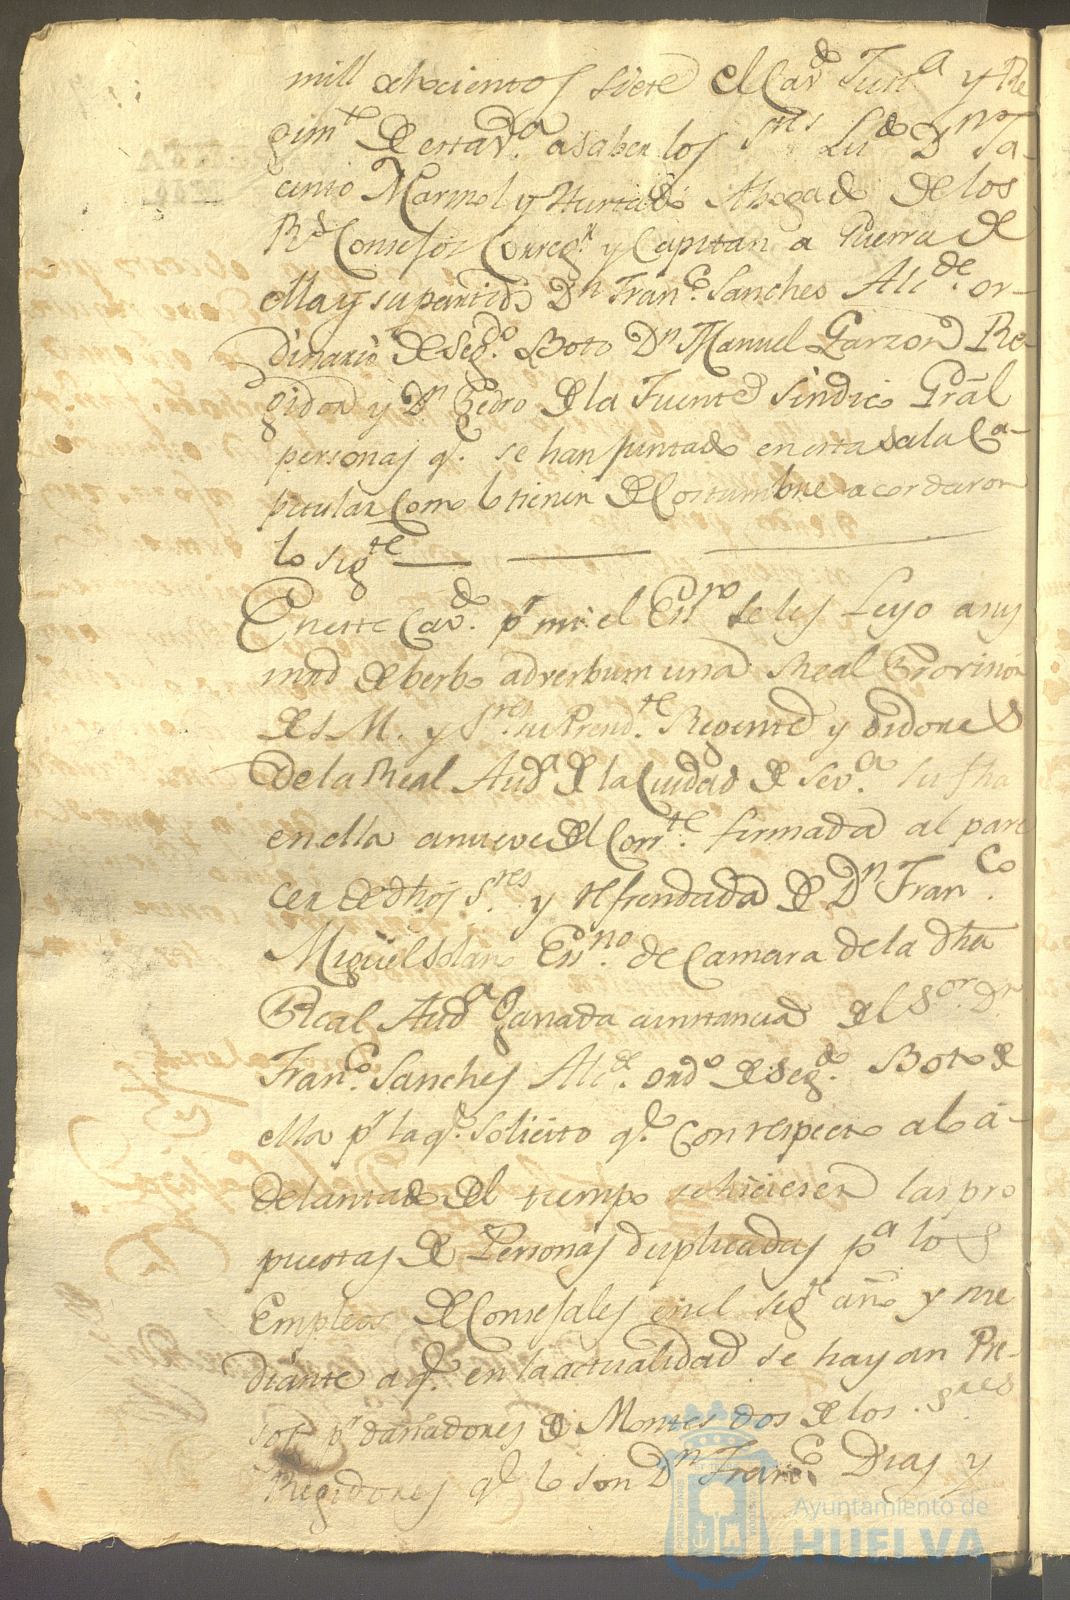 mill ochocientos siete el Cavdo Justa y Re
gimto de esta va a saber los Sres Licdo Dn Ja-
cinto Marmol y Hurtado Abogado de los
Rs Consejos Corregr y Capitan a Guerra de
ella y su partido Dn Franco Sanches Alcde or-
dinario de Segdo Boto Dn Manuel Garzon Re-
gidor y Dn Pedro de la Fuente Sindico Gràl
personas q. se han juntado en esta sala Ca-
pitular como lo tienen de Costumbre acordaron
lo sigte
En este Cavdo pr mi el Essno se les Leyo a sus
mrd de berbo adverbum una Real Provision
de S. M. y Sres su Presidte Regente y oidores
de la Real Auda de la Ciudad de Seva su fha
en ella a nueve del Corrte firmada al pare
cer de dhos Sres y refrendada de Dn Franco
Miguel Solano Essno de Camara de la dha
Real Auda Ganada a instancia del Sor Dn
Franco Sanches Alcde ordo de Segdo Boto de
ella pr la q. Solicito q. Con respecto a lo a-
delantado del tiempo se hiciesen las pro
puestas de Personas duplicadas pa los
Empleos de Consejales en el sigte año y me
diante a q. en la actualidad se hayan Pre-
sos pr dañadores de Montes dos de los Sres
Regidores q. lo son Dn Franco Dias y
Ayuntamiento de
HUELVA